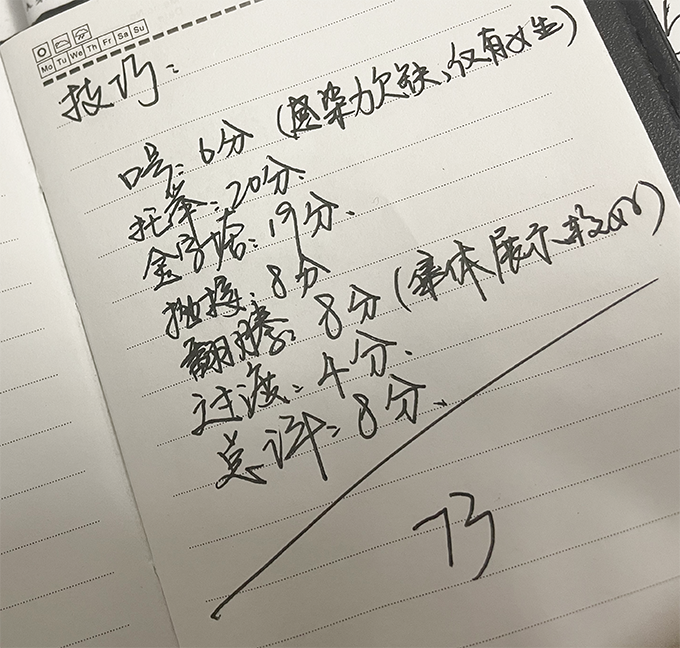 Mo Tu We Th Fr Sa Su
技巧:
口号: 6分 (感染力欠缺, 仅有女生)
托举: 20分.
金字塔: 19分.
抛接: 8分
翻腾: 8分 (集体展示较少)
过渡: 4分.
总评: 8分.
73